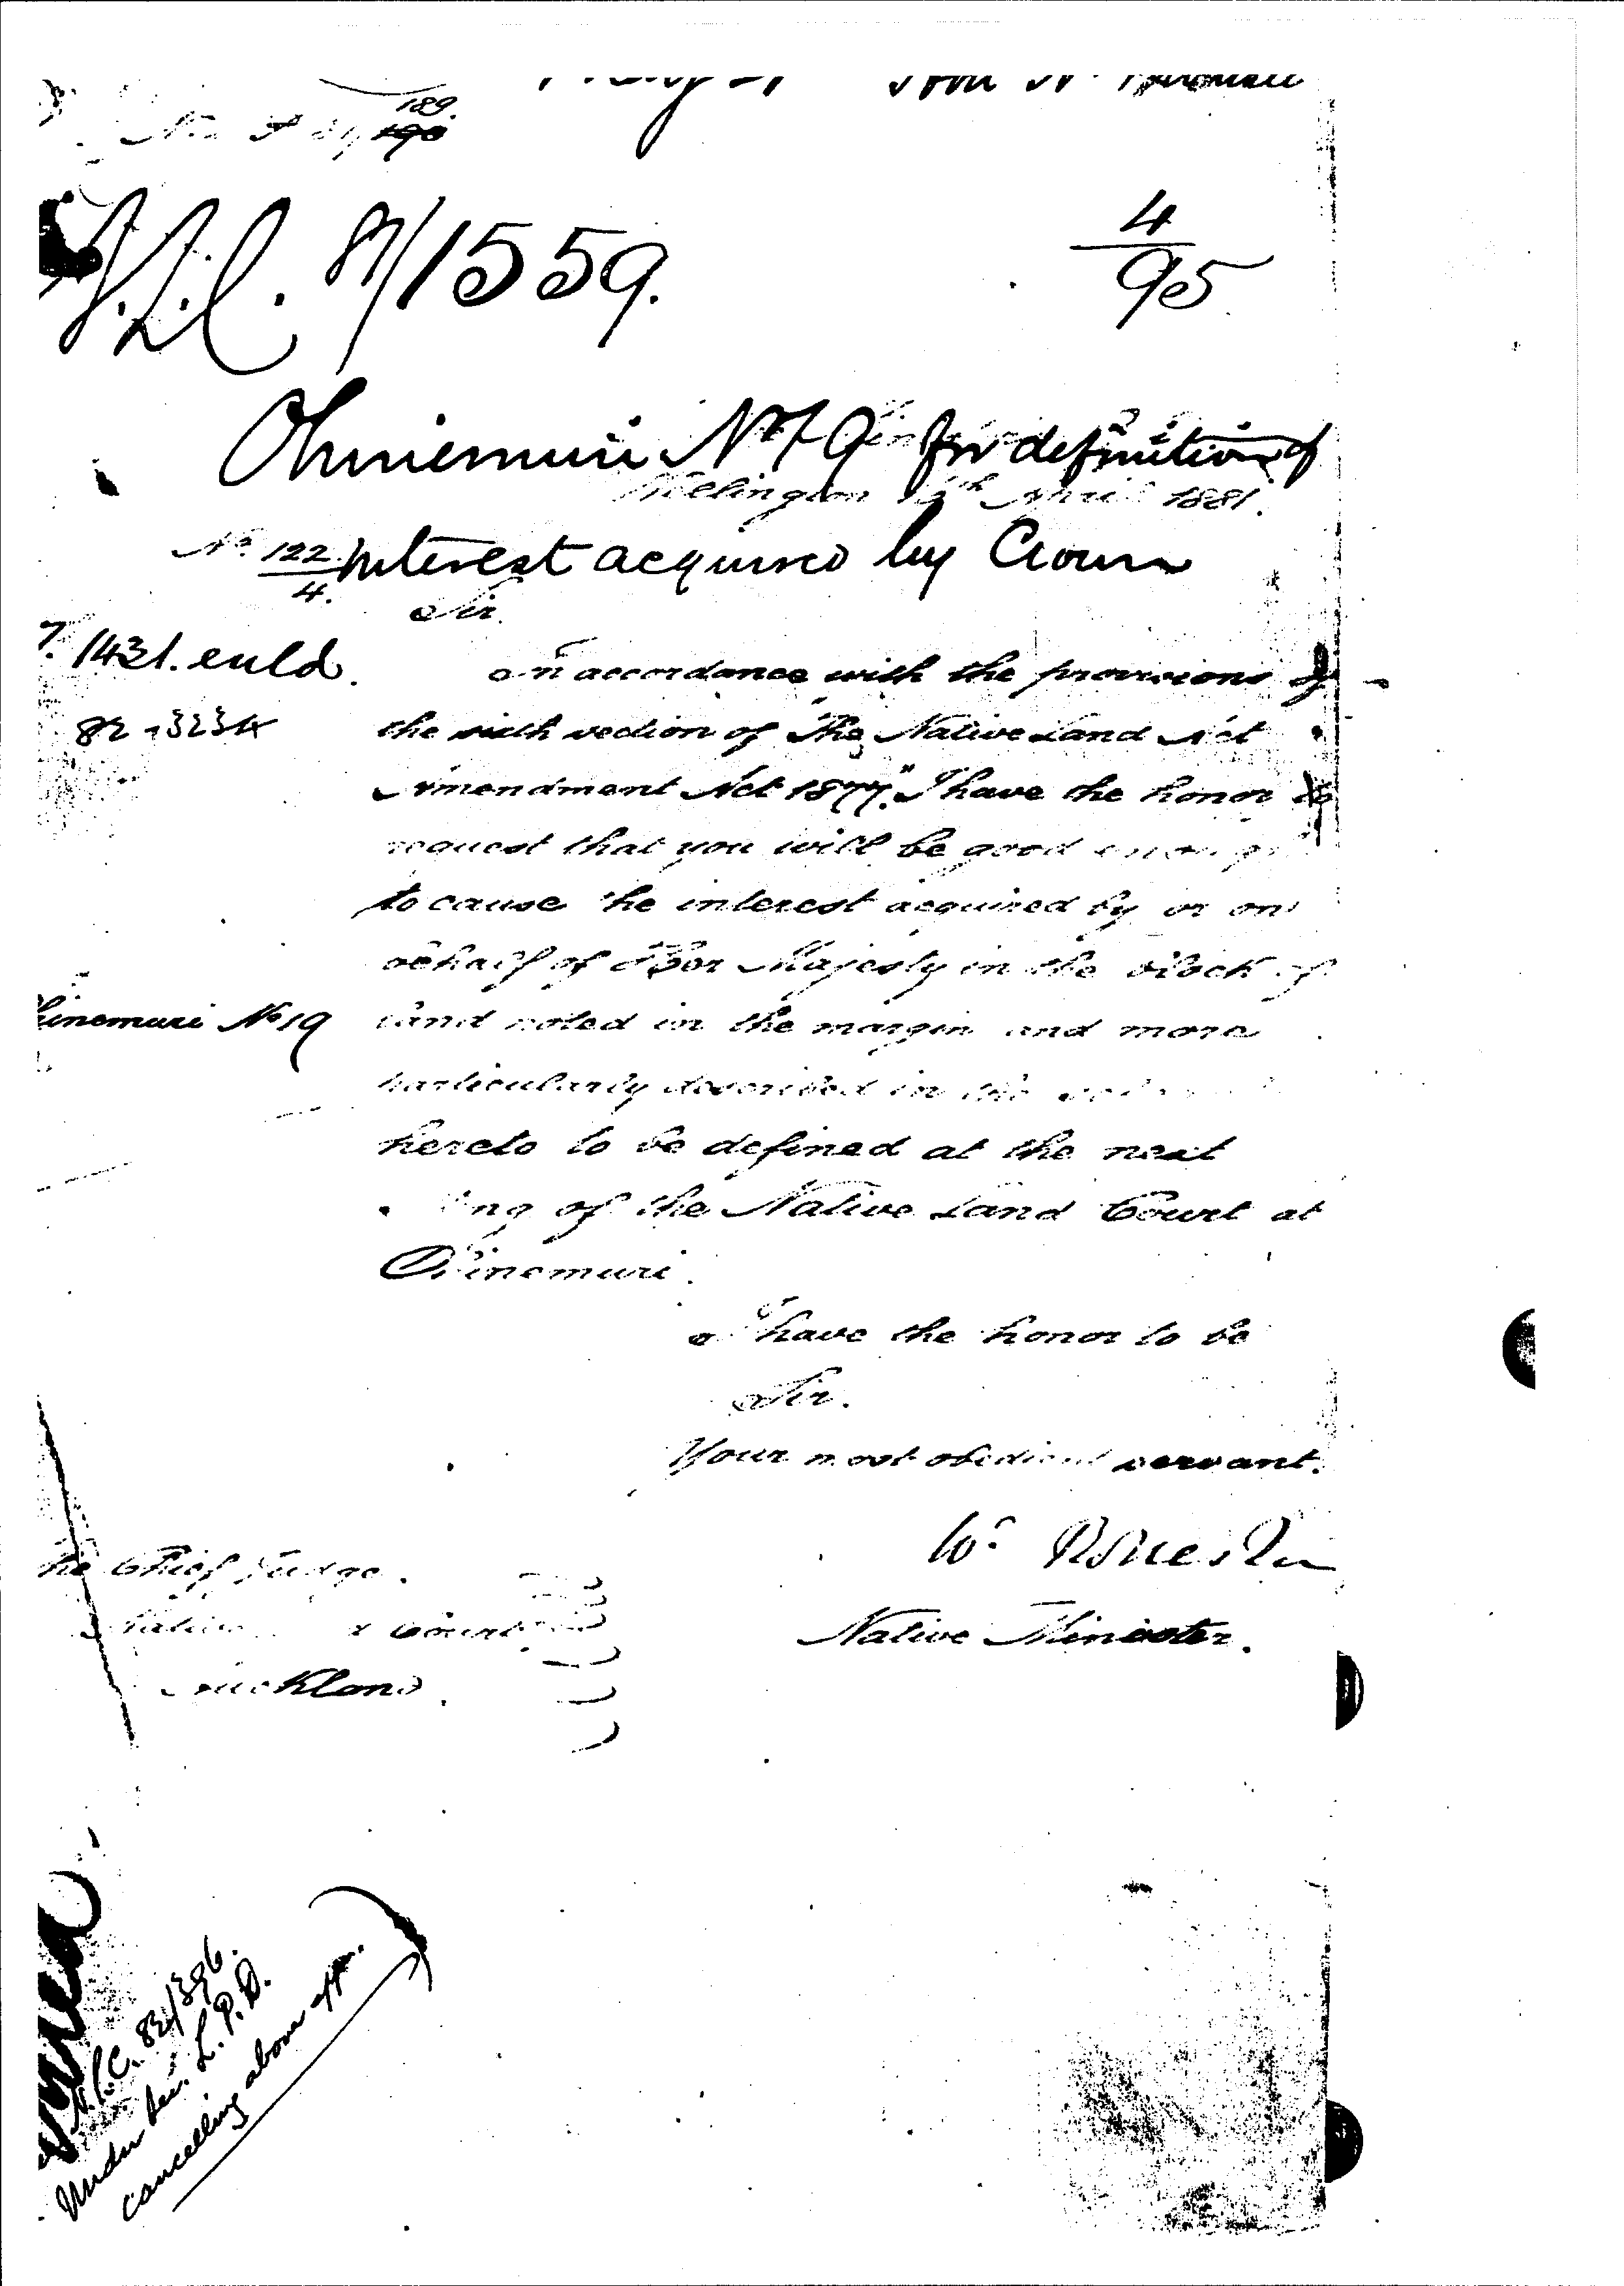 189.
190
N.L.C. 81/1559.
4
95
Ohinemuri No 19 for definition of
Wellington April 1881.
No. 122
4.
interest acquired by Crown
Sir.
1431. encld.
82-3234
In accordance with the provisions of
the sixth section of "The Native Land Act
Amendment Act 1877." I have the honor to
request that you will be good enough
to cause the interest acquired by or on
behalf of Her Majesty in the block of
hinemuri No 19
land noted in the margin and more
particularly described in the
hereto to be defined at the next
ing of the Native Land Court at
Ohinemuri.
I have the honor to be
Sir.
Your most obedient servant.
Wm Rolleston
Native Minister.
The Chief Judge.
Native Court
Auckland.
N.L.C. 82/396.
Under Sec. L.P.D.
cancelling above app.